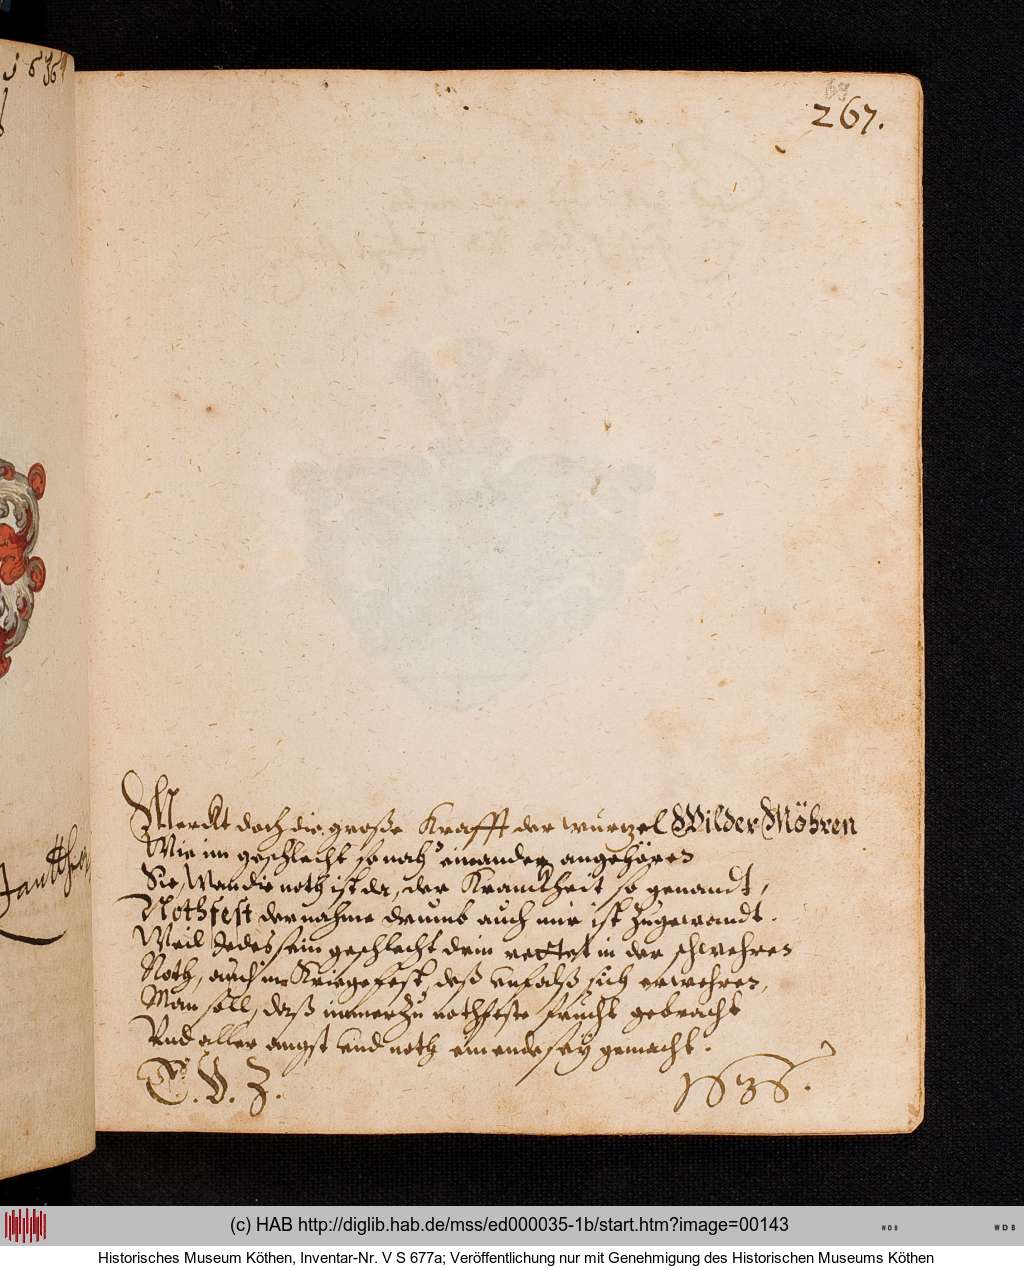 1636
69
267.
Merckt doch die große Krafft der wurtzel Wilder Möhren
Wie im geschlecht so nah einander angehören
Sie, Wan die noth ist da, der Kranckheit so genandt,
Nothfest der nahme drumb auch mir ist zugewandt.
Weil Jedes sein geschlecht drin rettet in der schwehren
Noth, auch im Kriege fest, deß unfalß sich erwehren,
Man soll, daß immerzu nothfeste frucht gebracht
Vnd aller angst und noth ein ende sey gemacht.
C. V. Z.
1636.
(c) HAB http://diglib.hab.de/mss/ed000035-1b/start.htm?image=00143
WDB
WDB
Historisches Museum Köthen, Inventar-Nr. V S 677a; Veröffentlichung nur mit Genehmigung des Historischen Museums Köthen